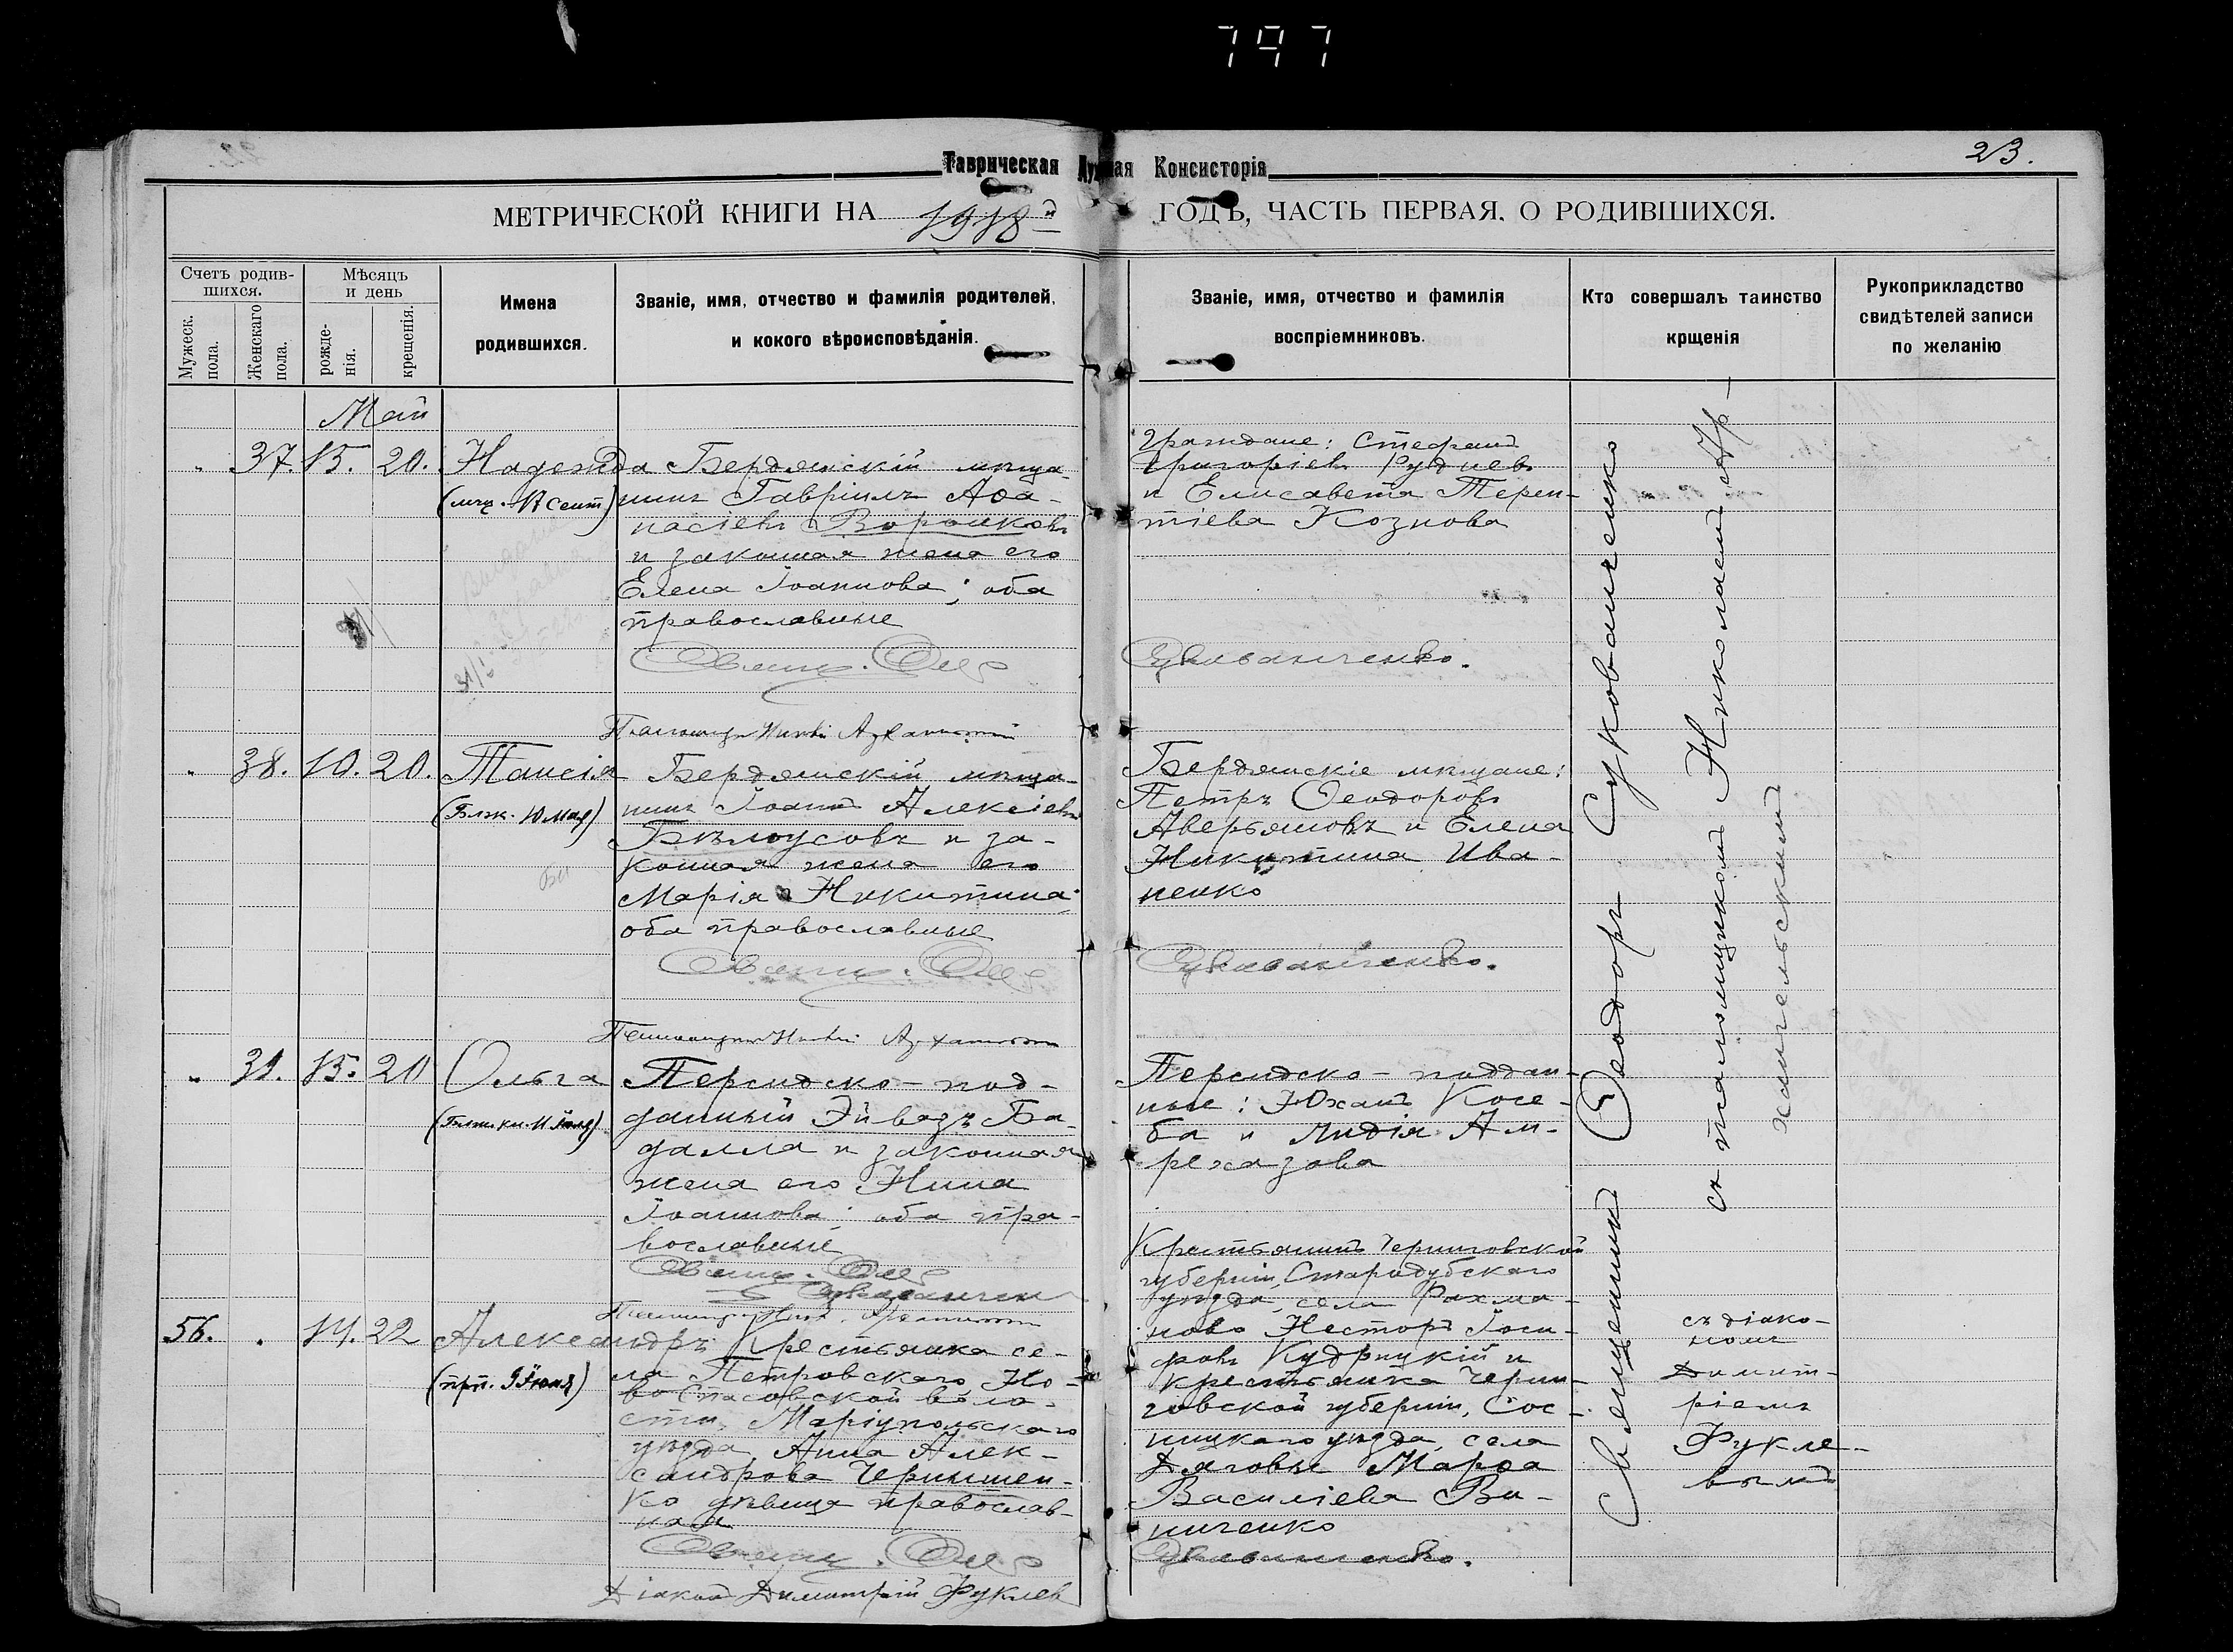 797
23.
Таврическая Духовная Консисторія
МЕТРИЧЕСКОЙ КНИГИ НА 1918й ГОДЪ, ЧАСТЬ ПЕРВАЯ. О РОДИВШИХСЯ.
Счетъ родив-
шихся.
Мужеск.
пола.
Женскаго
пола.
Мѣсяцъ
и день
рожде-
нія.
крещенія.
Имена
родившихся.
Званіе, имя, отчество и фамилія родителей,
и кокого вѣроисповѣданія.
Званіе, имя, отчество и фамилія
воспріемниковъ.
Кто совершалъ таинство
крщенія
Рукоприкладство
свидѣтелей записи
по желанію
Май
37. 15. 20. Надежда
(мчц. 17 сент)
Бердянскій мѣща-
нинъ Гавріилъ Аѳа-
насіевъ Воронковъ
и законная жена его
Елена Іоаннова; оба
православные
Свящ. Ѳеод
Граждане: Стефанъ
Григоріевъ Рудневъ
и Елисавета Терен-
тіева Кознова
Сукованченко.
Псаломщикъ Никол
38. 10. 20. Таисія
(Блж. 10 мая)
Бердянскій мѣща-
нинъ Іоаннъ Алексіевъ
Бѣлоусовъ и за-
конная жена его
Марія Никитина;
оба православные
Свящ. Ѳеод
Бердянскіе мѣщане:
Петръ Ѳеодоровъ
Аверьяновъ и Елена
Никитина Ива-
ненко
Сукованченко.
Псаломщикъ Никол
39. 15. 20 Ольга
Персидско-под-
данный Эйвазъ Ба-
далла и законная
жена его Нина
Іоаннова; оба пра-
вославные
Свящ. Ѳеод
Сукованченко
Персидско-поддан-
ные: Юханъ Косе-
ба и Лидія Ам-
рехазова
Псаломщ. Никол.
56. 14. 22 Александръ
(прп. 9 Іюня)
Крестьянка се-
ла Петровскаго, Но-
воспасовской воло-
сти, Маріупольскаго
уѣзда Анна Алек-
сандрова Чернышен-
ко дѣвица православ-
ная
Свящ. Ѳеод
Діаконъ Димитрій Фуклев
Крестьянинъ Черниговской
губерніи, Стародубскаго
уѣзда, села Рахма-
ново Несторъ Іоси-
фовъ Кудрицкій и
крестьянка Черни-
говской губерніи, Сос-
ницкаго уѣзда села
Дяговы Марѳа
Василіева Ви-
ниченко
Сукованченко.
Священникъ Ѳеодоръ Сукованченко
съ псаломщикомъ Николаемъ Ар-
хангельскимъ
съ діако-
номъ
Димит-
ріемъ
Фукле-
вымъ